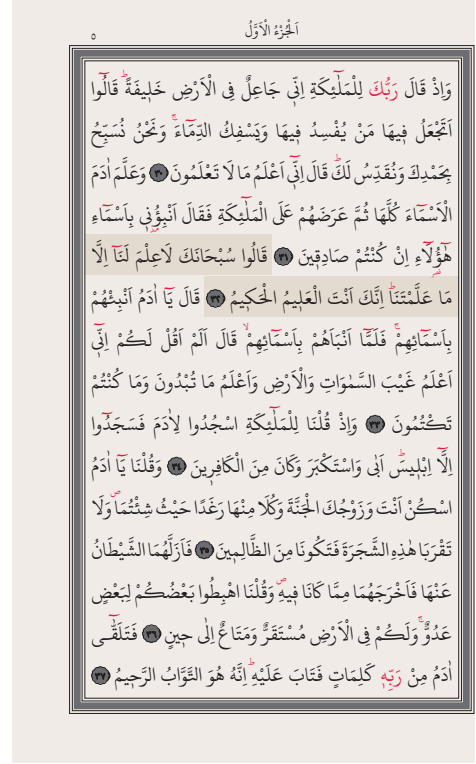 اَلْجُزْءُ الْاَوَّلُ
٥
وَاِذْ قَالَ رَبُّكَ لِلْمَلٰٓئِكَةِ اِنّ۪ي جَاعِلٌ فِي الْاَرْضِ خَل۪يفَةًۜ قَالُٓوا
اَتَجْعَلُ ف۪يهَا مَنْ يُفْسِدُ ف۪يهَا وَيَسْفِكُ الدِّمَٓاءَۚ وَنَحْنُ نُسَبِّحُ
بِحَمْدِكَ وَنُقَدِّسُ لَكَۜ قَالَ اِنّ۪ٓي اَعْلَمُ مَا لَا تَعْلَمُونَ ﴿٣٠﴾ وَعَلَّمَ اٰدَمَ
الْاَسْمَٓاءَ كُلَّهَا ثُمَّ عَرَضَهُمْ عَلَى الْمَلٰٓئِكَةِ فَقَالَ اَنْبِؤُ۫ن۪ي بِاَسْمَٓاءِ
هٰٓؤُ۬لَٓاءِ اِنْ كُنْتُمْ صَادِق۪ينَ ﴿٣١﴾ قَالُوا سُبْحَانَكَ لَا عِلْمَ لَنَٓا اِلَّا
مَا عَلَّمْتَنَاۜ اِنَّكَ اَنْتَ الْعَل۪يمُ الْحَك۪يمُ ﴿٣٢﴾ قَالَ يَٓا اٰدَمُ اَنْبِئْهُمْ
بِاَسْمَٓائِهِمْۚ فَلَمَّٓا اَنْبَاَهُمْ بِاَسْمَٓائِهِمْۙ قَالَ اَلَمْ اَقُلْ لَكُمْ اِنّ۪ٓي
اَعْلَمُ غَيْبَ السَّمٰوَاتِ وَالْاَرْضِ وَاَعْلَمُ مَا تُبْدُونَ وَمَا كُنْتُمْ
تَكْتُمُونَ ﴿٣٣﴾ وَاِذْ قُلْنَا لِلْمَلٰٓئِكَةِ اسْجُدُوا لِاٰدَمَ فَسَجَدُٓوا
اِلَّٓا اِبْل۪يسَۜ اَبٰى وَاسْتَكْبَرَ وَكَانَ مِنَ الْكَافِر۪ينَ ﴿٣٤﴾ وَقُلْنَا يَٓا اٰدَمُ
اسْكُنْ اَنْتَ وَزَوْجُكَ الْجَنَّةَ وَكُلَا مِنْهَا رَغَدًا حَيْثُ شِئْتُمَاۖ وَلَا
تَقْرَبَا هٰذِهِ الشَّجَرَةَ فَتَكُونَا مِنَ الظَّالِم۪ينَ ﴿٣٥﴾ فَاَزَلَّهُمَا الشَّيْطَانُ
عَنْهَا فَاَخْرَجَهُمَا مِمَّا كَانَا ف۪يهِۖ وَقُلْنَا اهْبِطُوا بَعْضُكُمْ لِبَعْضٍ
عَدُوٌّۚ وَلَكُمْ فِي الْاَرْضِ مُسْتَقَرٌّ وَمَتَاعٌ اِلٰى ح۪ينٍ ﴿٣٦﴾ فَتَلَقّٰٓى
اٰدَمُ مِنْ رَبِّه۪ كَلِمَاتٍ فَتَابَ عَلَيْهِۜ اِنَّهُ هُوَ التَّوَّابُ الرَّح۪يمُ ﴿٣٧﴾